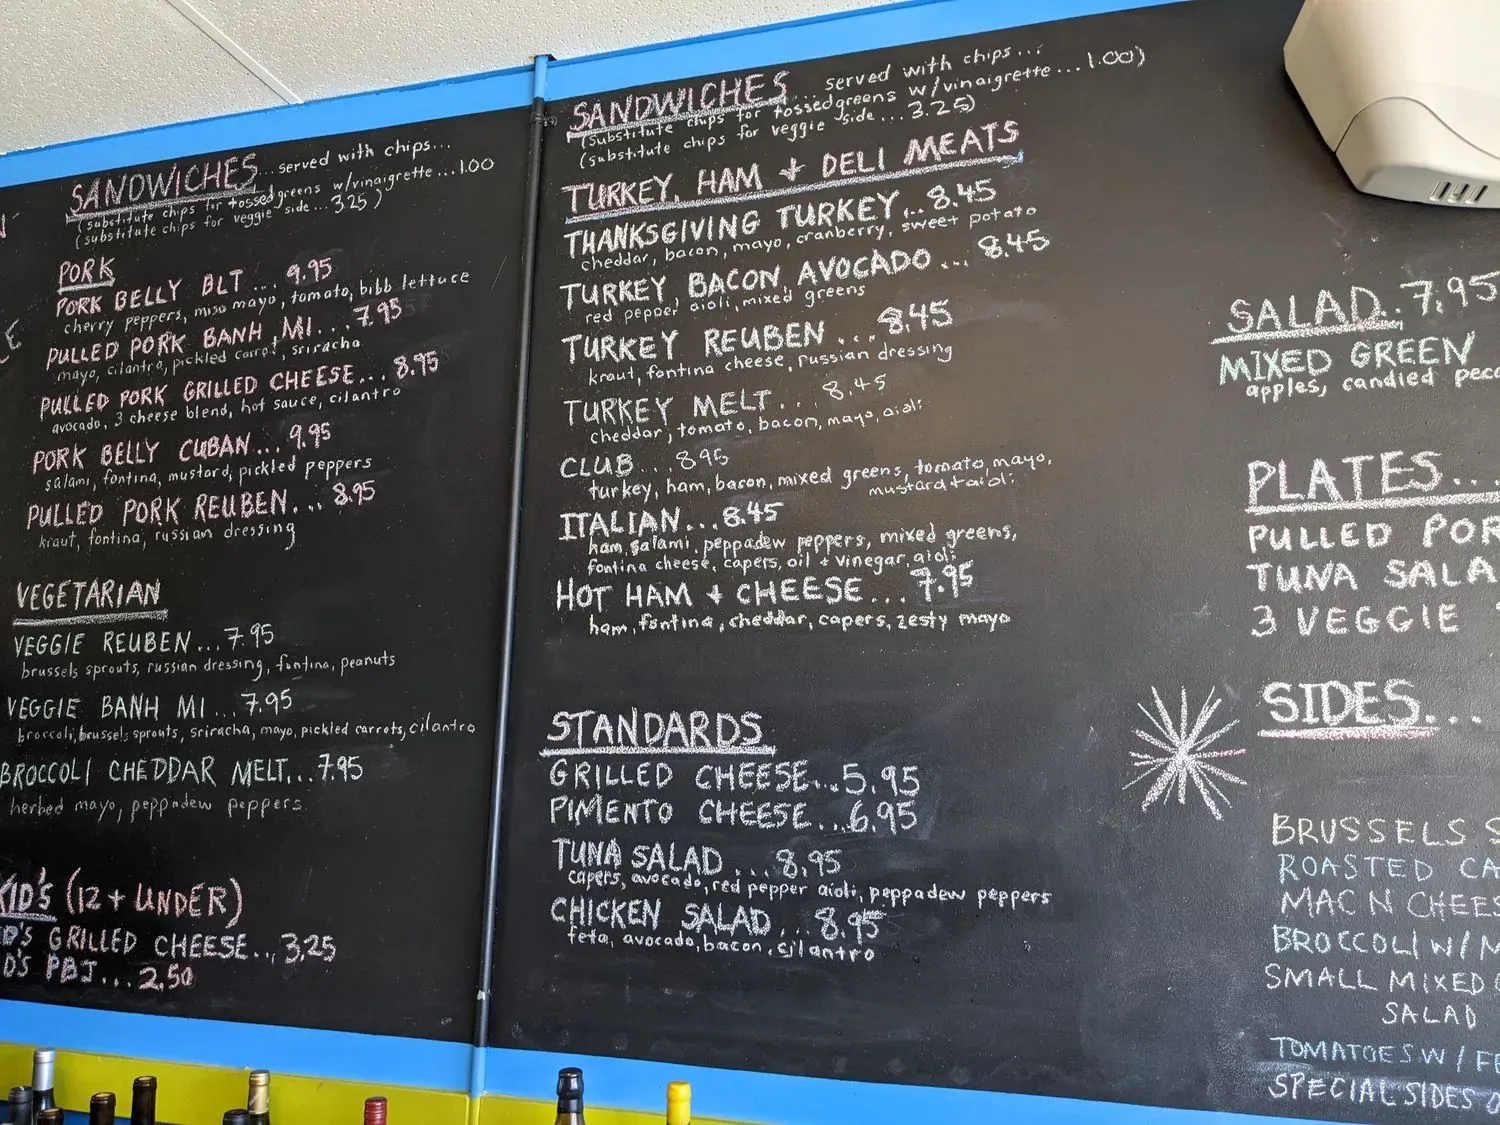 SANDWICHES... served with chips...
(substitute chips for tossed greens w/vinaigrette...1.00
(substitute chips for veggie side...3.25)
PORK
PORK BELLY BLT... 9.95
cherry peppers, miso mayo, tomato, bibb lettuce
PULLED PORK BANH MI... 7.95
mayo, cilantro, pickled carrot, sriracha
PULLED PORK GRILLED CHEESE... 8.95
avocado, 3 cheese blend, hot sauce, cilantro
PORK BELLY CUBAN... 9.95
salami, fontina, mustard, pickled peppers
PULLED PORK REUBEN... 8.95
kraut, fontina, russian dressing
VEGETARIAN
VEGGIE REUBEN...7.95
brussels sprouts, russian dressing, fontina, peanuts
VEGGIE BANH MI...7.95
broccoli, brussels sprouts, sriracha, mayo, pickled carrots, cilantro
BROCCOLI CHEDDAR MELT...7.95
herbed mayo, peppadew peppers
KID'S (12 + UNDER)
GRILLED CHEESE... 3.25
PBJ...2.50
SANDWICHES... served with chips...
(substitute chips for tossed greens w/vinaigrette...1.00)
(substitute chips for veggie side...3.25)
TURKEY, HAM + DELI MEATS
THANKSGIVING TURKEY... 8.45
cheddar, bacon, mayo, cranberry, sweet potato
TURKEY, BACON, AVOCADO... 8.45
red pepper aioli, mixed greens
TURKEY REUBEN... 8.45
kraut, fontina cheese, russian dressing
TURKEY MELT... 8.45
cheddar, tomato, bacon, mayo, aioli
CLUB...8.95
turkey, ham, bacon, mixed greens, tomato, mayo,
mustard + aioli
ITALIAN...8.45
ham, salami, peppadew peppers, mixed greens,
fontina cheese, capers, oil + vinegar, aioli
HOT HAM + CHEESE... 7.95
ham, fontina, cheddar, capers, zesty mayo
STANDARDS
GRILLED CHEESE...5.95
PIMENTO CHEESE...6.95
TUNA SALAD... 8.95
capers, avocado, red pepper aioli, peppadew peppers
CHICKEN SALAD... 8.95
feta, avocado, bacon, cilantro
SALAD..7.95
MIXED GREEN
apples, candied
PLATES...
PULLED
TUNA
3 VEGGIE
SIDES...
BRUSSELS
ROASTED
MAC N
BROCCOLI W/
SMALL MIXED
SALAD
TOMATOES W/
SPECIAL SIDES